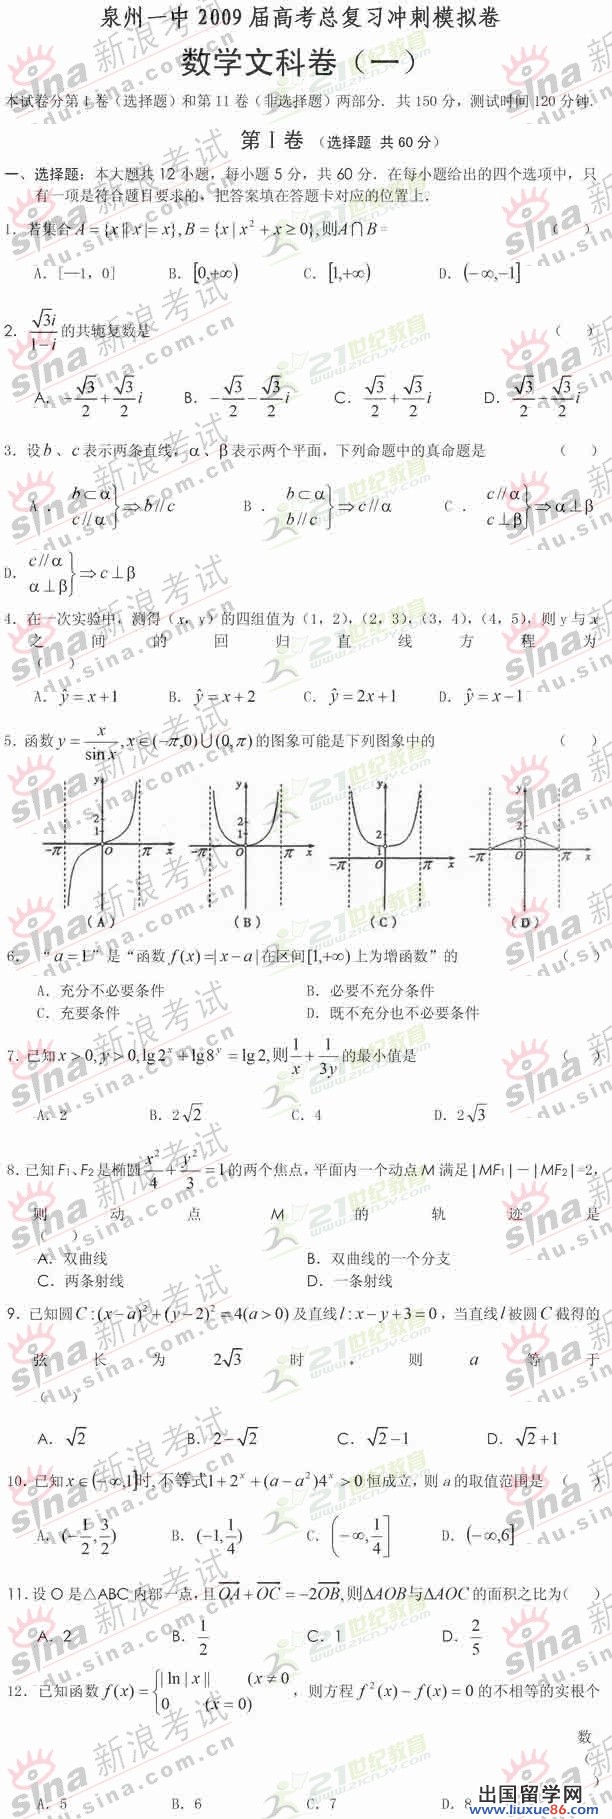 泉州一中 2009 届高考总复习冲刺模拟卷
数学文科卷（一）
本试卷分第 I 卷（选择题）和第 11 卷（非选择题）两部分．共 150 分，测试时间 120 分钟．
第 I 卷 （选择题 共 60 分）
一、选择题：本大题共 12 小题，每小题 5 分，共 60 分．在每小题给出的四个选项中，只
有一项是符合题目要求的，把答案填在答题卡对应的位置上．
1．若集合 A = {x || x |= x}, B = {x | x² + x ≥ 0}, 则A∩B = （ ）
A．[—1，0] B．[0,+∞) C．[1,+∞) D．(-∞,-1]
2．√3i/(1-i) 的共轭复数是 （ ）
A．-√3/2 + √3/2 i B．-√3/2 - √3/2 i C．√3/2 + √3/2 i D．√3/2 - √3/2 i
3．设 b 、c 表示两条直线，α、β 表示两个平面，下列命题中的真命题是 （ ）
A． b⊂α c//α } ⇒ b//c B． b⊂α b//c } ⇒ c//α C． c//α c⊥β } ⇒ α⊥β
D． c//α α⊥β } ⇒ c⊥β
4．在一次实验中，测得（x，y）的四组值为（1，2），（2，3），（3，4），（4，5），则 y 与 x
之 间 的 回 归 直 线 方 程 为
（ ）
A．ŷ = x+1 B．ŷ = x+2 C．ŷ = 2x+1 D．ŷ = x-1
5．函数 y = x/sin x, x∈(-π,0)∪(0,π) 的图象可能是下列图象中的 （ ）
y 2 1 -π O π x y 2 1 -π O π x y 2 1 -π O π x y 2 1 -π O π x
（A） （B） （C） （D）
6． “a = 1”是“函数 f(x) =| x-a | 在区间[1,+∞) 上为增函数”的 （ ）
A．充分不必要条件 B．必要不充分条件
C．充要条件 D．既不充分也不必要条件
7．已知 x > 0, y > 0, lg 2ˣ + lg 8ʸ = lg 2, 则 1/x + 1/3y 的最小值是 （ ）
A．2 B．2√2 C．4 D．2√3
8．已知 F₁、F₂ 是椭圆 x²/4 + y²/3 = 1 的两个焦点，平面内一个动点 M 满足|MF₁|－|MF₂|=2，
则 动 点 M 的 轨 迹 是
（ ）
A．双曲线 B．双曲线的一个分支
C．两条射线 D．一条射线
9．已知圆 C : (x-a)² + (y-2)² = 4(a > 0) 及直线 l : x-y+3 = 0 ，当直线 l 被圆 C 截得的
弦 长 为 2√3 时 ， 则 a 等 于
（ ）
A．√2 B．2-√2 C．√2-1 D．√2+1
10．已知 x∈(-∞,1]时, 不等式1+2ˣ+(a-a²)4ˣ > 0 恒成立，则 a 的取值范围是 （ ）
A．(-1/2, 3/2) B．(-1, 1/4) C．(-∞, 1/4] D．(-∞,6]
11．设 O 是△ABC 内部一点，且 OA + OC = -2OB, 则ΔAOB与ΔAOC 的面积之比为( )
A．2 B．1/2 C．1 D．2/5
12．已知函数 f(x) = { | ln | x || (x ≠ 0 0 (x = 0) ，则方程 f²(x) - f(x) = 0 的不相等的实根个
数
（
）
A．5 B．6 C．7 D．8
sina 新浪考试
edu.sina.com.cn
21世纪教育
21CNJY.COM
出国留学网
www.liuxue86.com